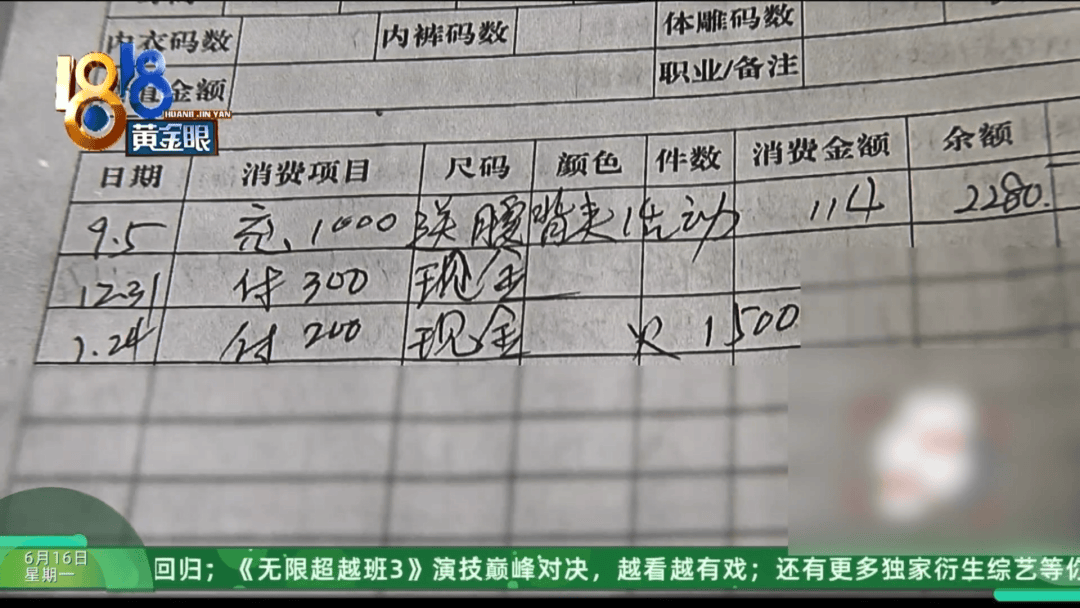 内衣码数 内裤码数 体雕码数
金额 职业/备注
1818
HUANG JIN YAN
黄金眼
日期 消费项目 尺码 颜色 件数 消费金额 余额
9.5 充、1000 送腰背夹活动 114 2280.
12.31 付300 现金
1.24 付200 现金 欠1500
6月16日
星期一
回归；《无限超越班3》演技巅峰对决，越看越有戏；还有更多独家衍生综艺等你